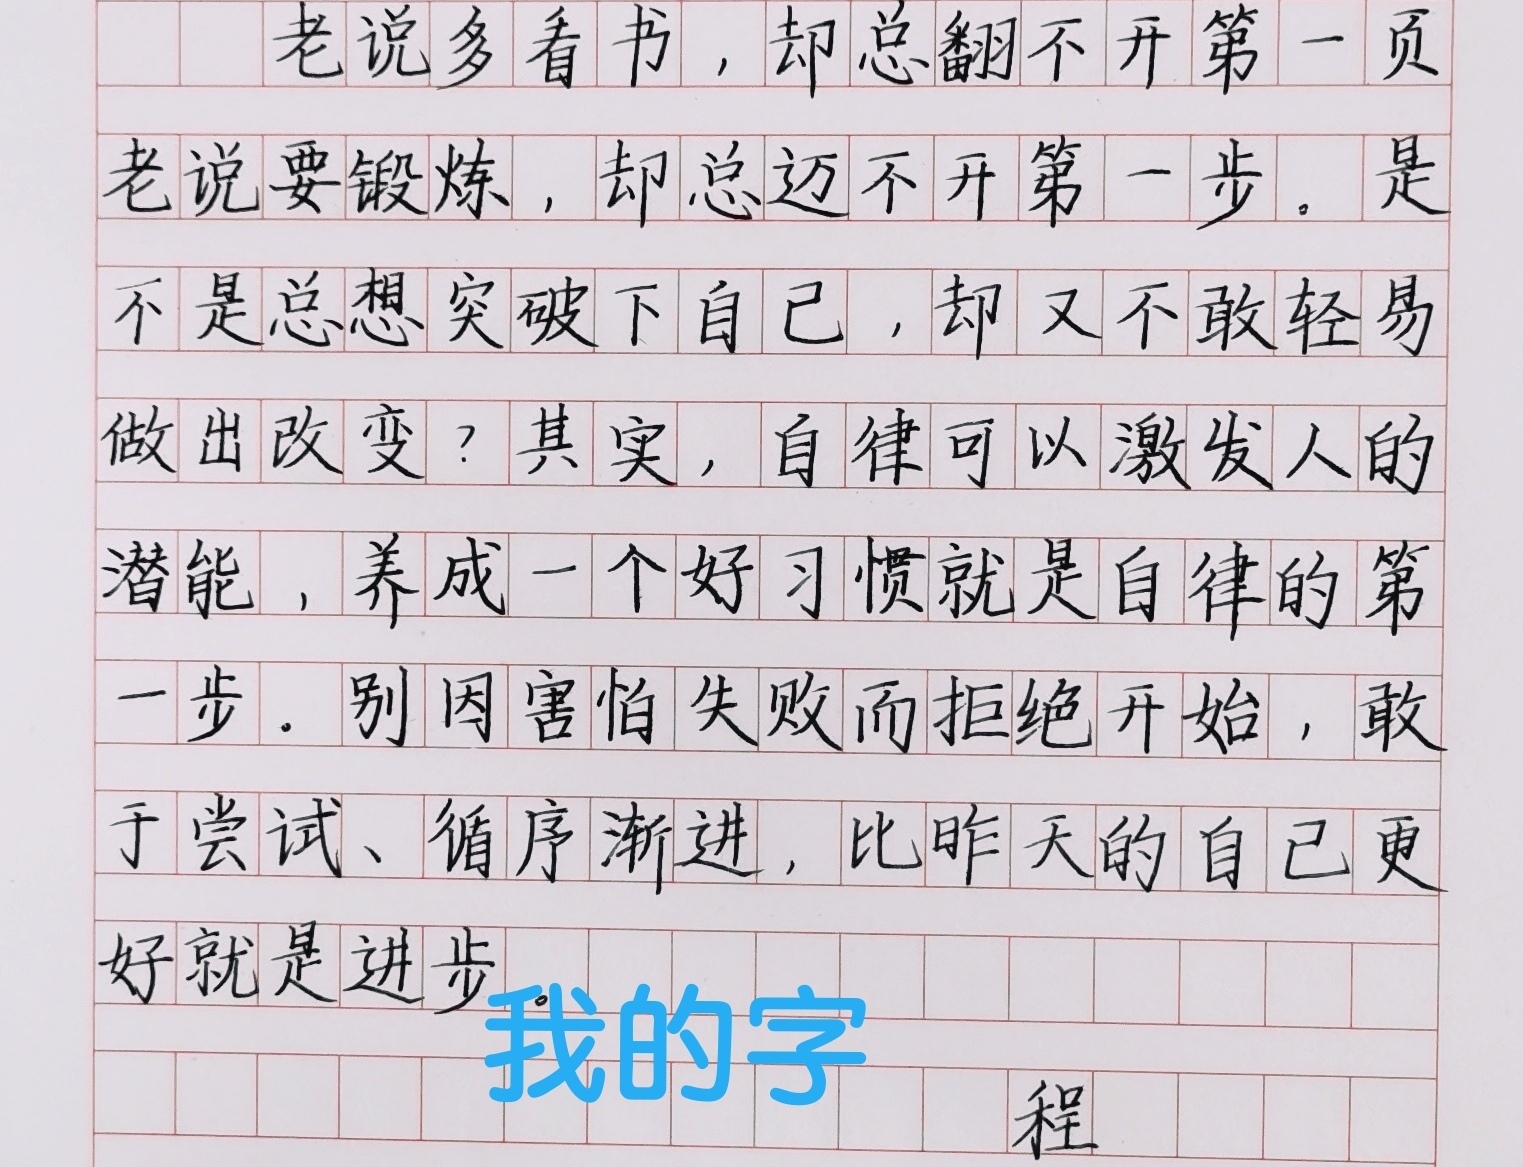 老说多看书，却总翻不开第一页
老说要锻炼，却总迈不开第一步。是
不是总想突破下自己，却又不敢轻易
做出改变？其实，自律可以激发人的
潜能，养成一个好习惯就是自律的第
一步。别因害怕失败而拒绝开始，敢
于尝试、循序渐进，比昨天的自己更
好就是进步。
我的字
程